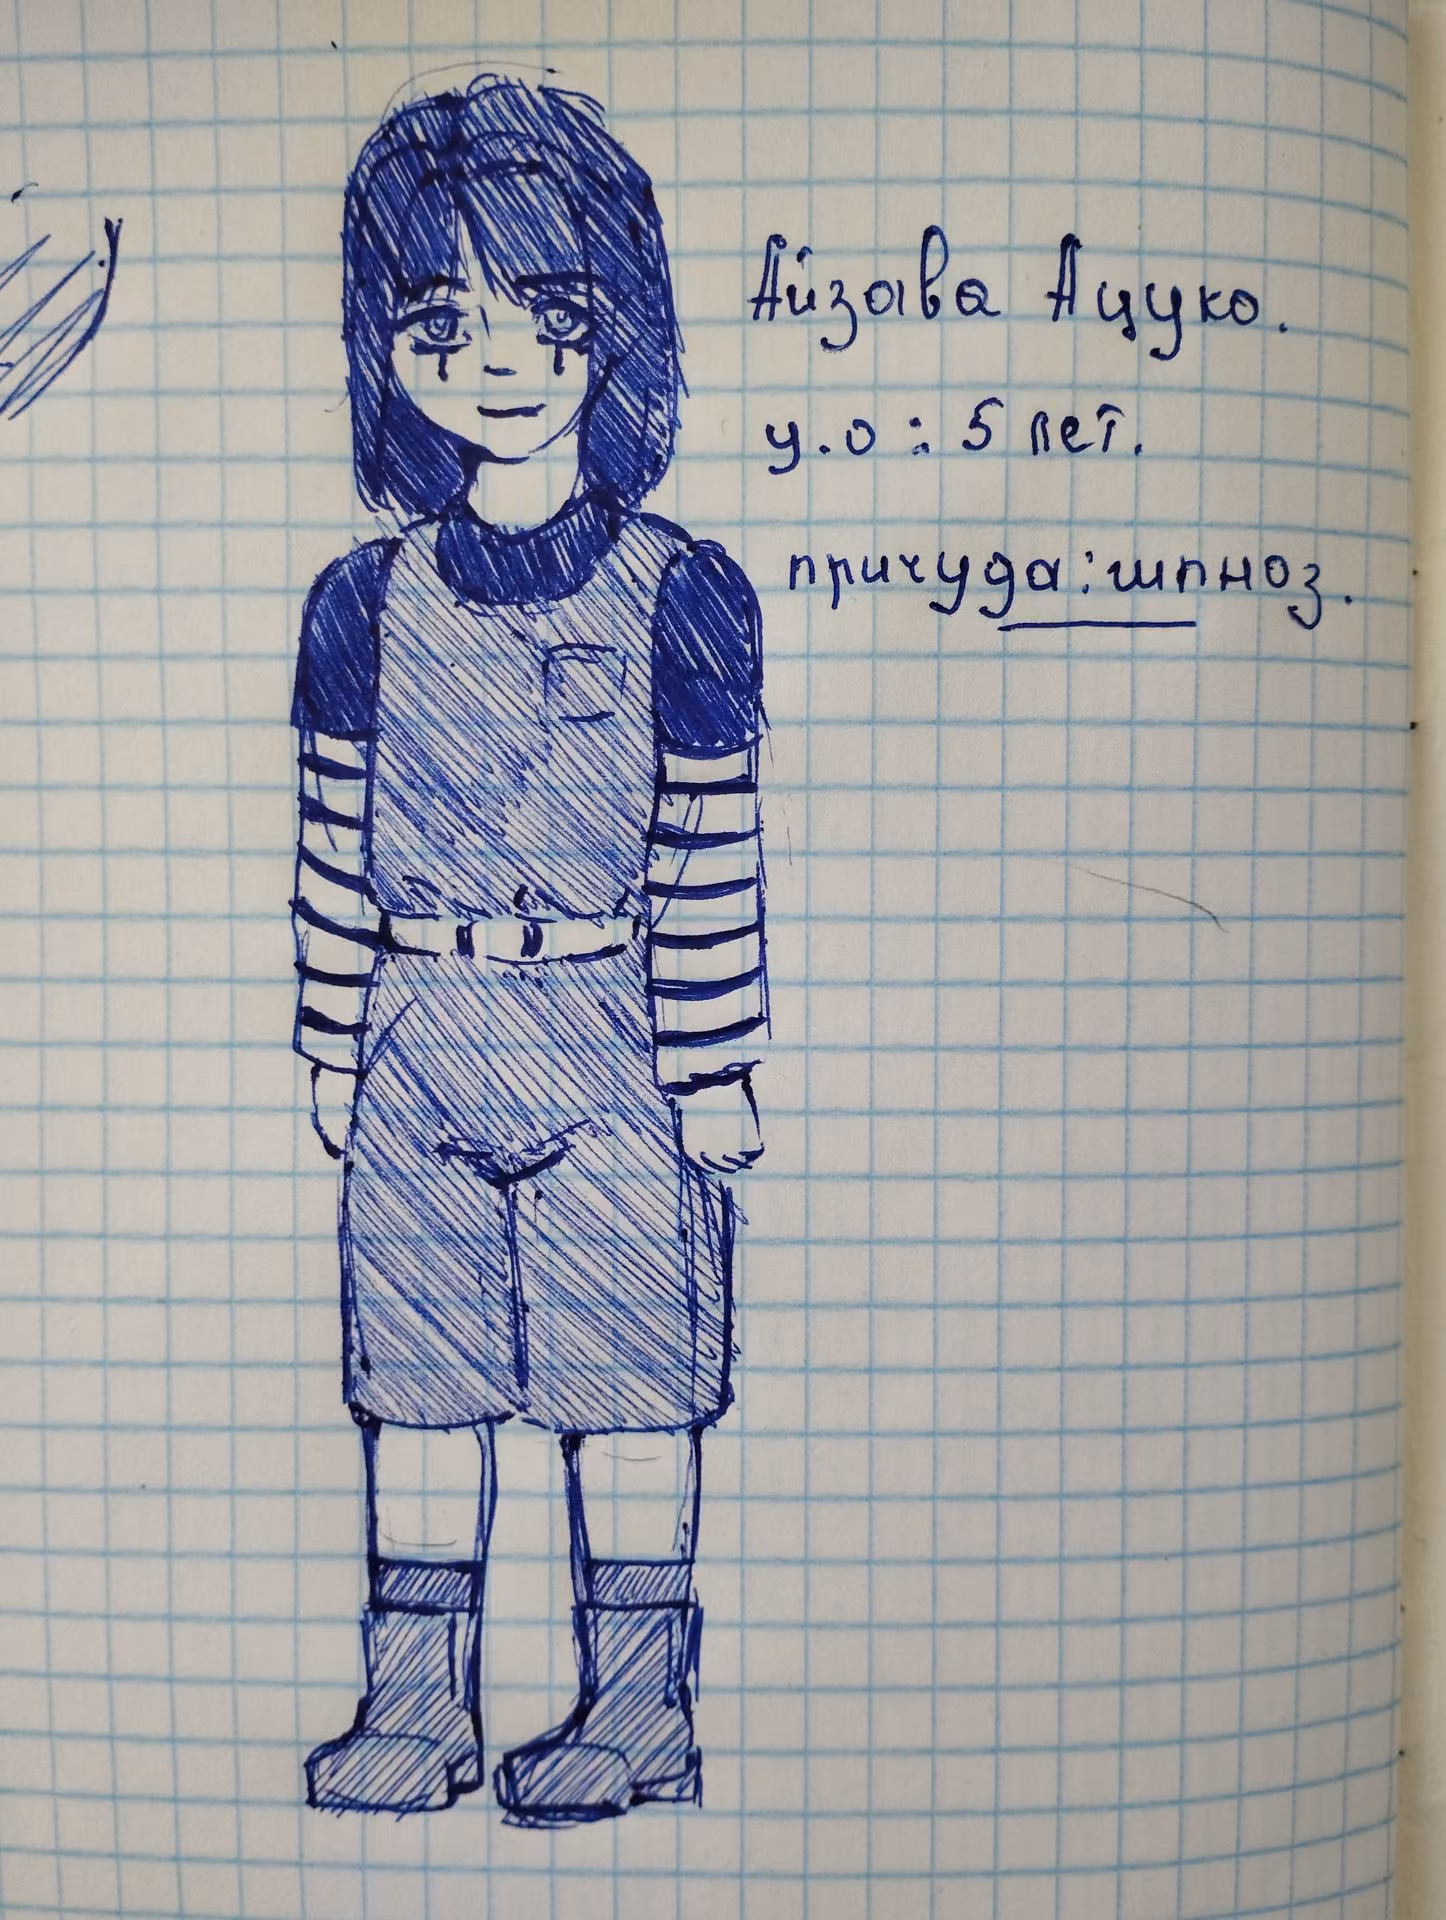 Айзава Ацуко.
у.о : 5 лет.
причуда: гипноз.